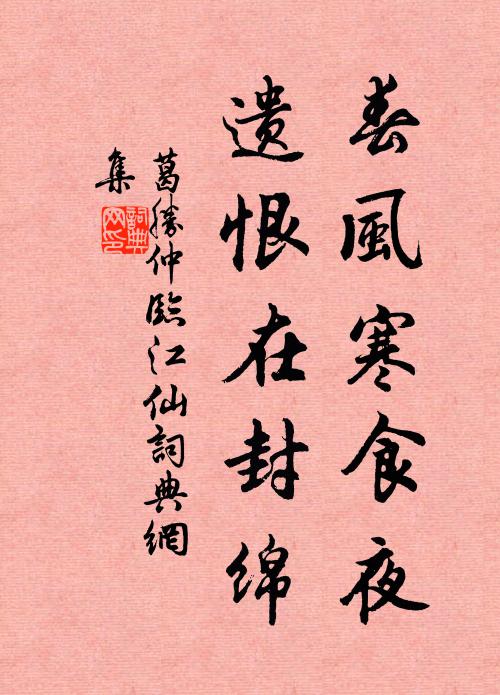 春風寒食夜
遗恨在封綿
葛勝仲臨江仙詞典網
集
詞典网印